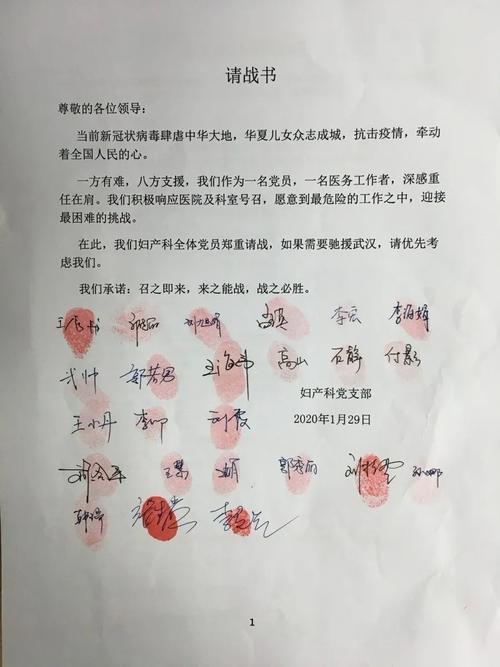 请战书
尊敬的各位领导：
当前新冠状病毒肆虐中华大地，华夏儿女众志成城，抗击疫情，牵动
着全国人民的心。
一方有难，八方支援，我们作为一名党员，一名医务工作者，深感重
任在肩。我们积极响应医院及科室号召，愿意到最危险的工作之中，迎接
最困难的挑战。
在此，我们妇产科全体党员郑重请战，如果需要驰援武汉，请优先考
虑我们。
我们承诺：召之即来，来之能战，战之必胜。
李云
武帅 郭若男 高山 石静 付影
妇产科党支部
王小丹 李卿 刘霞 2020年1月29日
1